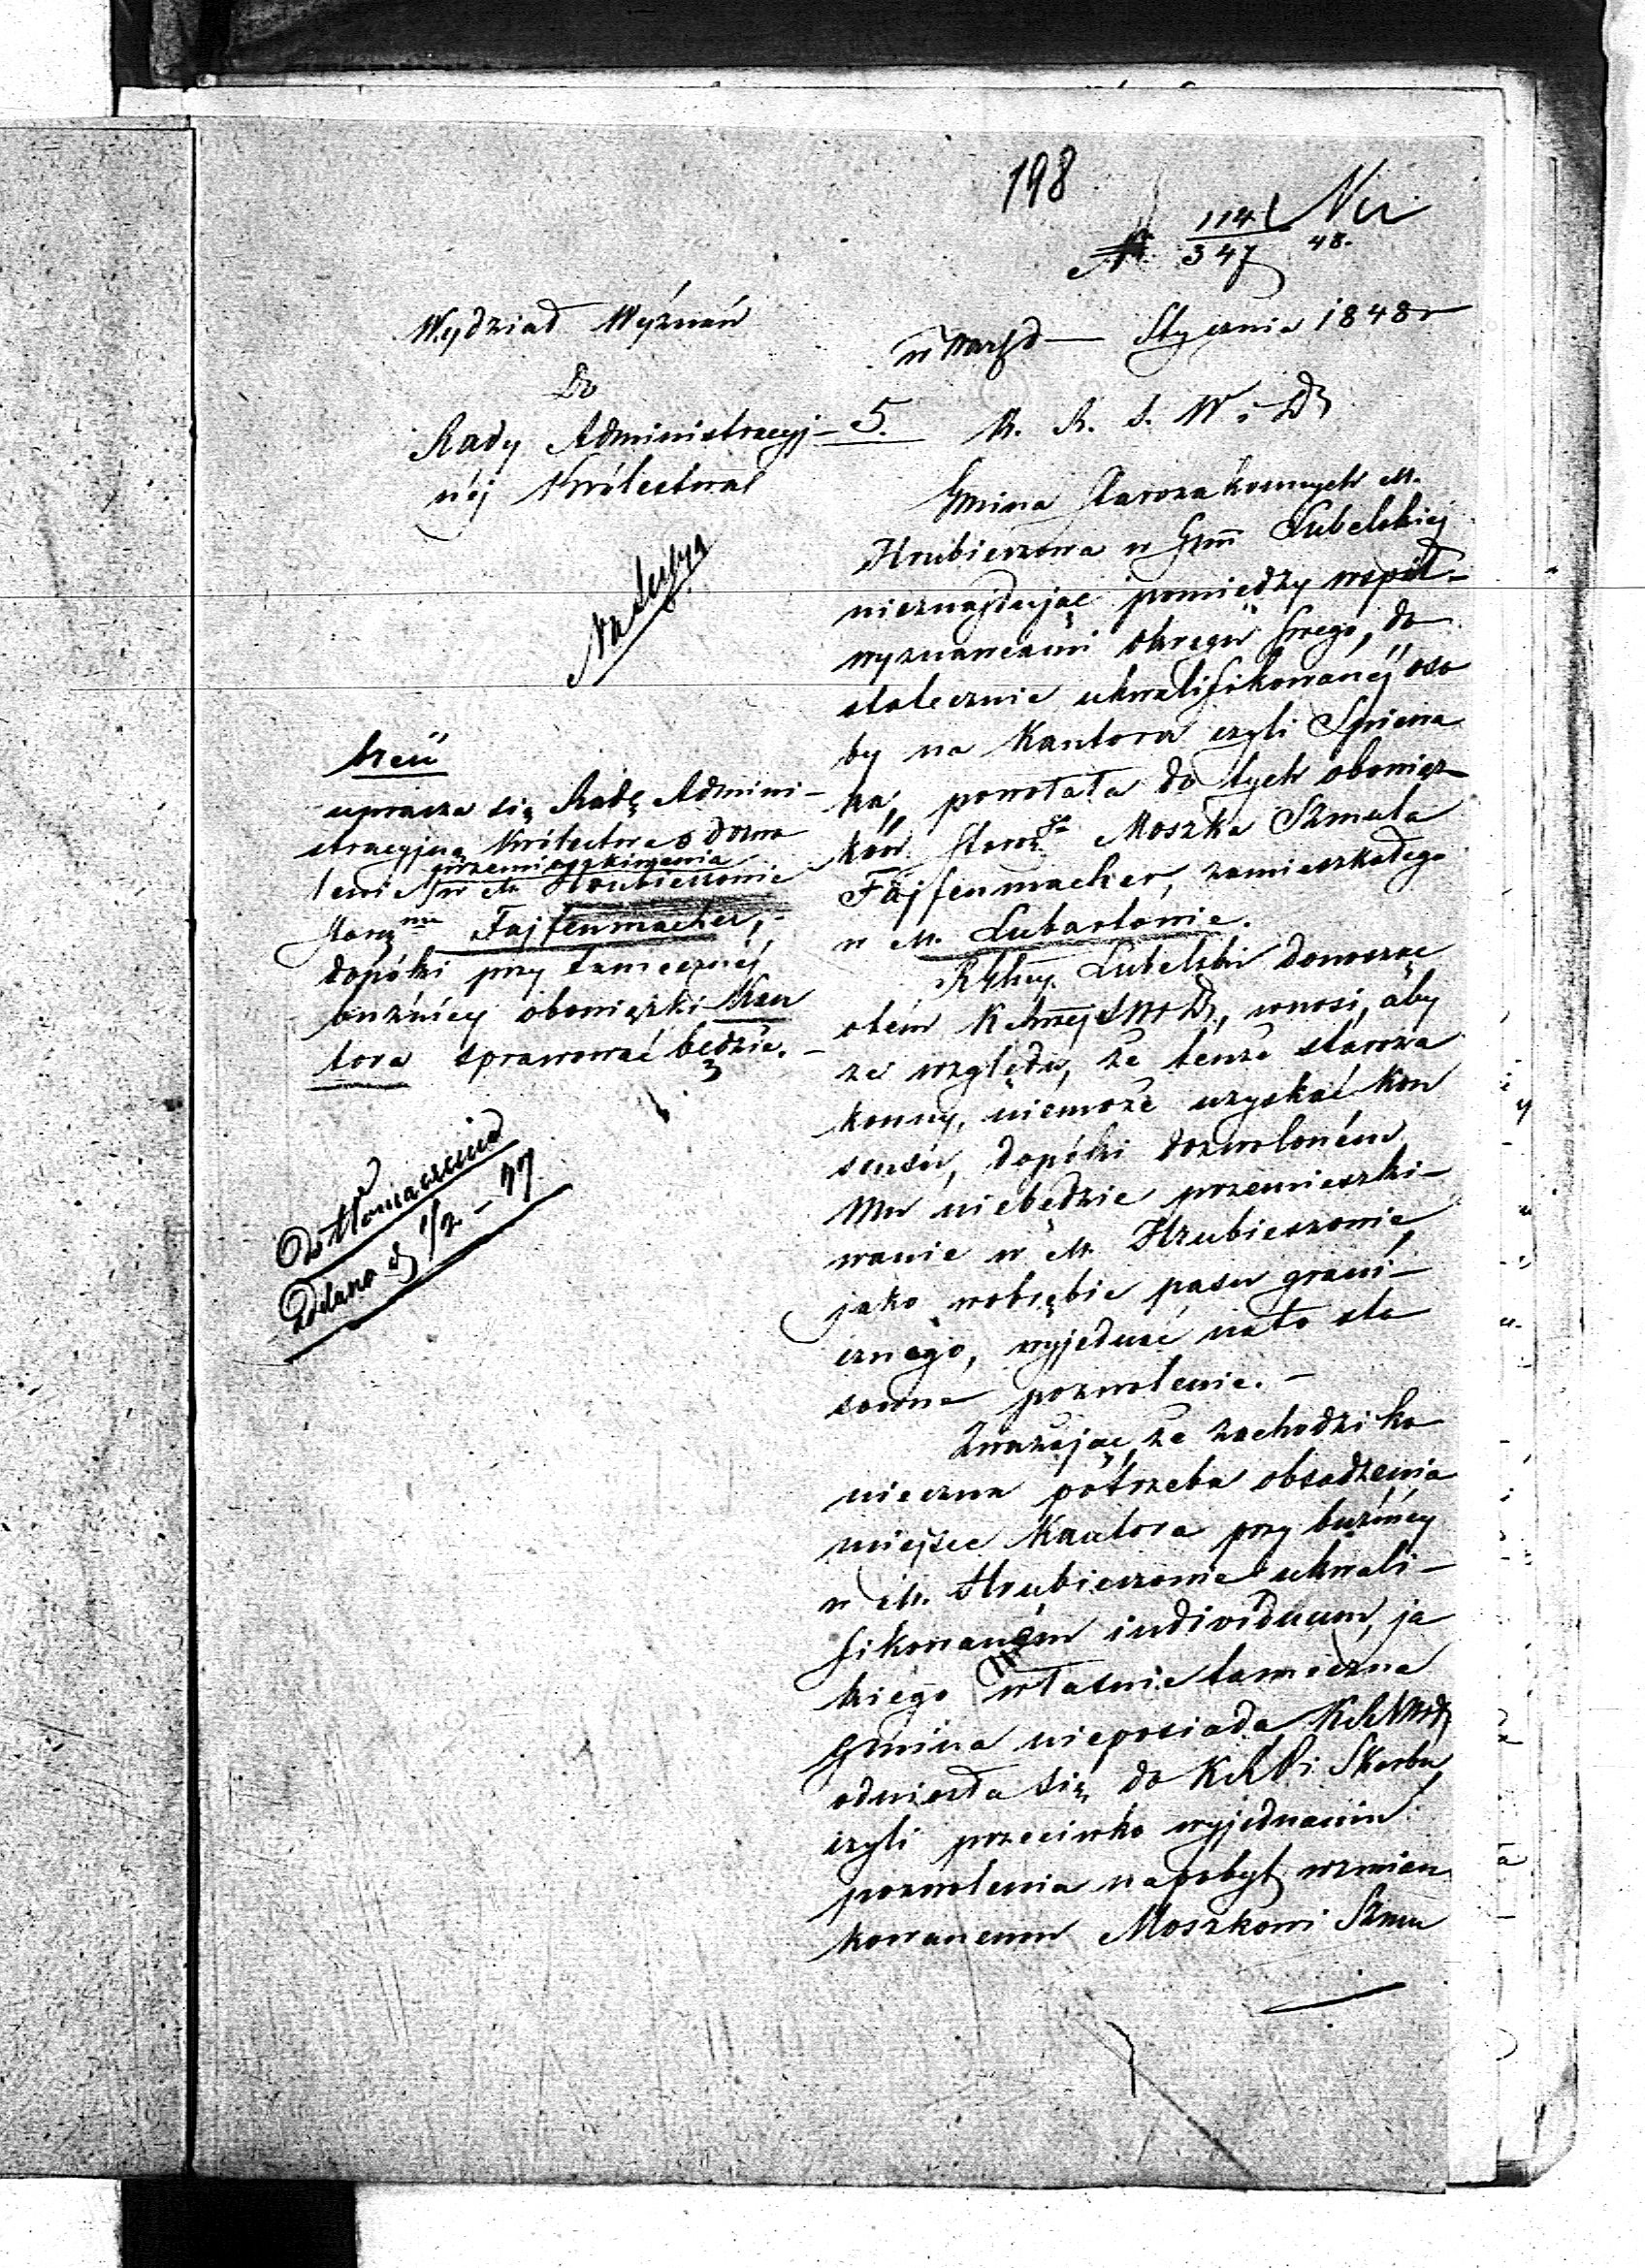 198
1141
347 48.
Wydział Wyznań
Do
Rady Administracyj-
néj Królestwa
w Warsz d — Stycznia 1848 r
5. K. R. S. W. i D.
Gmina Starozakonnych m.
Hrubieszowa w Gub Lubelskiej
nieznajdując pomiędzy współ-
wyznawcami okręgu swego, do
statecznie ukwalifikowanéj oso
by na Kantora czyli Spiewa
ka, powołała do tych obowiąz-
ków Staroz Moszka Szmula
Fajfenmacher, zamieszkałego
w m. Lubartowie.
Lubelski donosząc
otém wnosi, aby
ze względu, że tenże staroza
konny, niemoże uzyskać kon
sensu, dopóki dozwoloném
mu niebędzie przemieszki-
wanie w m. Hrubieszowie,
jako wobrębie pasu grani-
cznego, wyjednać nato sto
sowne pozwolenie.-
Zważając, że zachodzi ko
nieczna potrzeba obsadzenia
miejsce Kantora przy bużnicy
w m. Hrubieszowie ukwali-
fikowaném individuum, ja
kiego właśnie tameczna
Gmina nieposiada
odniosła się do K R P i Skarbu
czyli przeciwko wyjednaniu
pozwolenia napobyt wzmian
kowanemu Moszkowi Szmu
treść
uprasza się Radę Admini-
stracyjną Królestwa o dozwo
lenie przemieszkiwania
w m. Hrubieszowie
Staroz mu Fajfenmacher,
dopóki przy tamecznéj
bużnicy obowiązki Kan
tora sprawować będzie.-
Do tłomaczenia
Zdano d 1/2 - 27